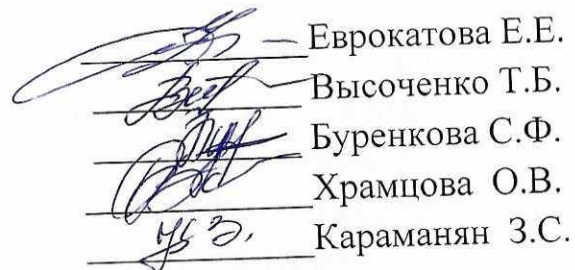 Еврокатова Е.Е.
Высоченко Т.Б.
Буренкова С.Ф.
Храмцова О.В.
Караманян З.С.